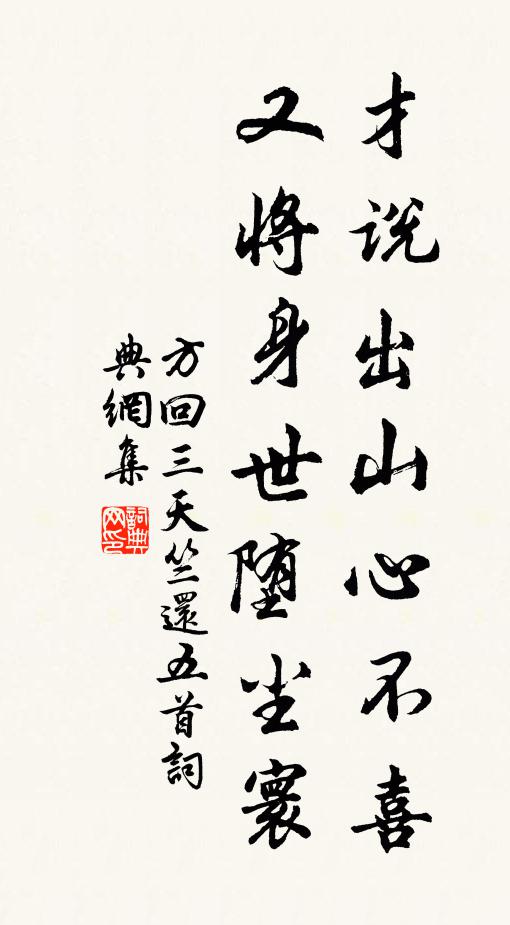 才说出山心不喜
又将身世堕尘寰
方回三天竺還五首詞
典網集
詞典網印